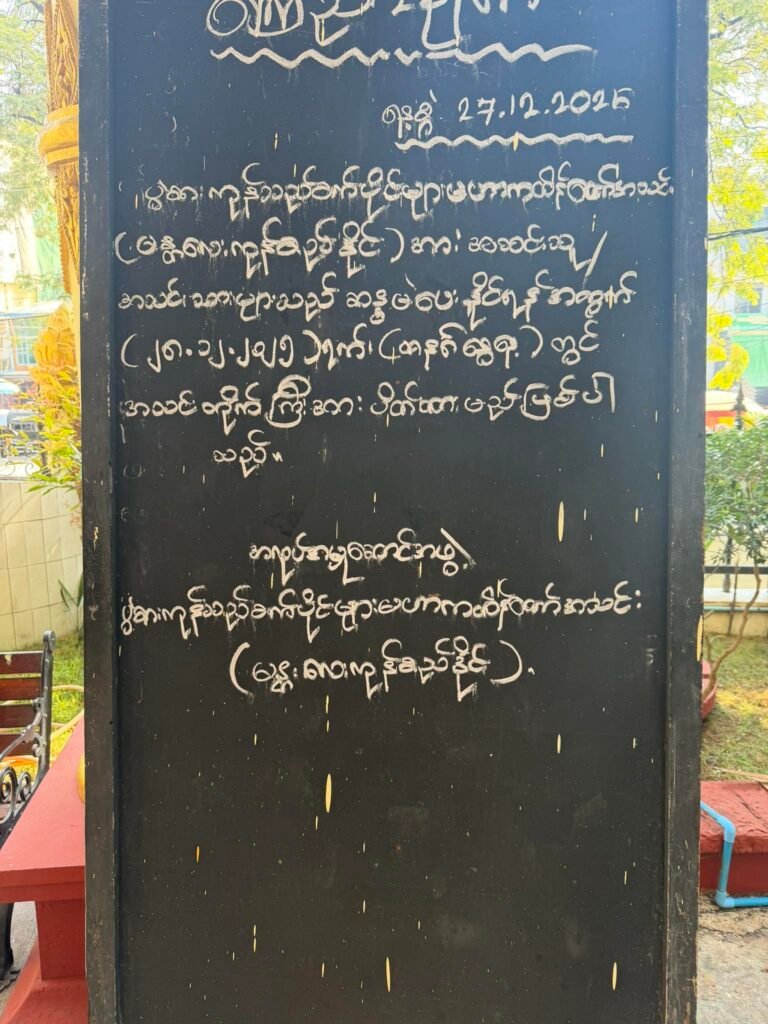 ကြေညာချက်
ရန့စွဲ 27.12.2025
ပွဲစား ကုန်သည်ဝက်ပိုင်များမဟာကထိန်တော်အသင်း
(မန္တလေးကုန်စည်ဒိုင်) အား အသင်းသူ/
အသင်းသားများသည် ဆန္ဒမဲပေးနိုင်ရန် အတွက်
(၂၈.၁၂.၂၀၂၅) ရက်၊ (တနင်္ဂနွေ) တွင်
အသင်းတိုက်ကြီးအား ပိတ်ထားမည်ဖြစ်ပါ
သည်။
အလုပ်အမှုဆောင်အဖွဲ့
ပွဲစားကုန်သည်ဝက်ပိုင်များမဟာကထိန်တော်အသင်း
(မန္တလေးကုန်စည်ဒိုင်).